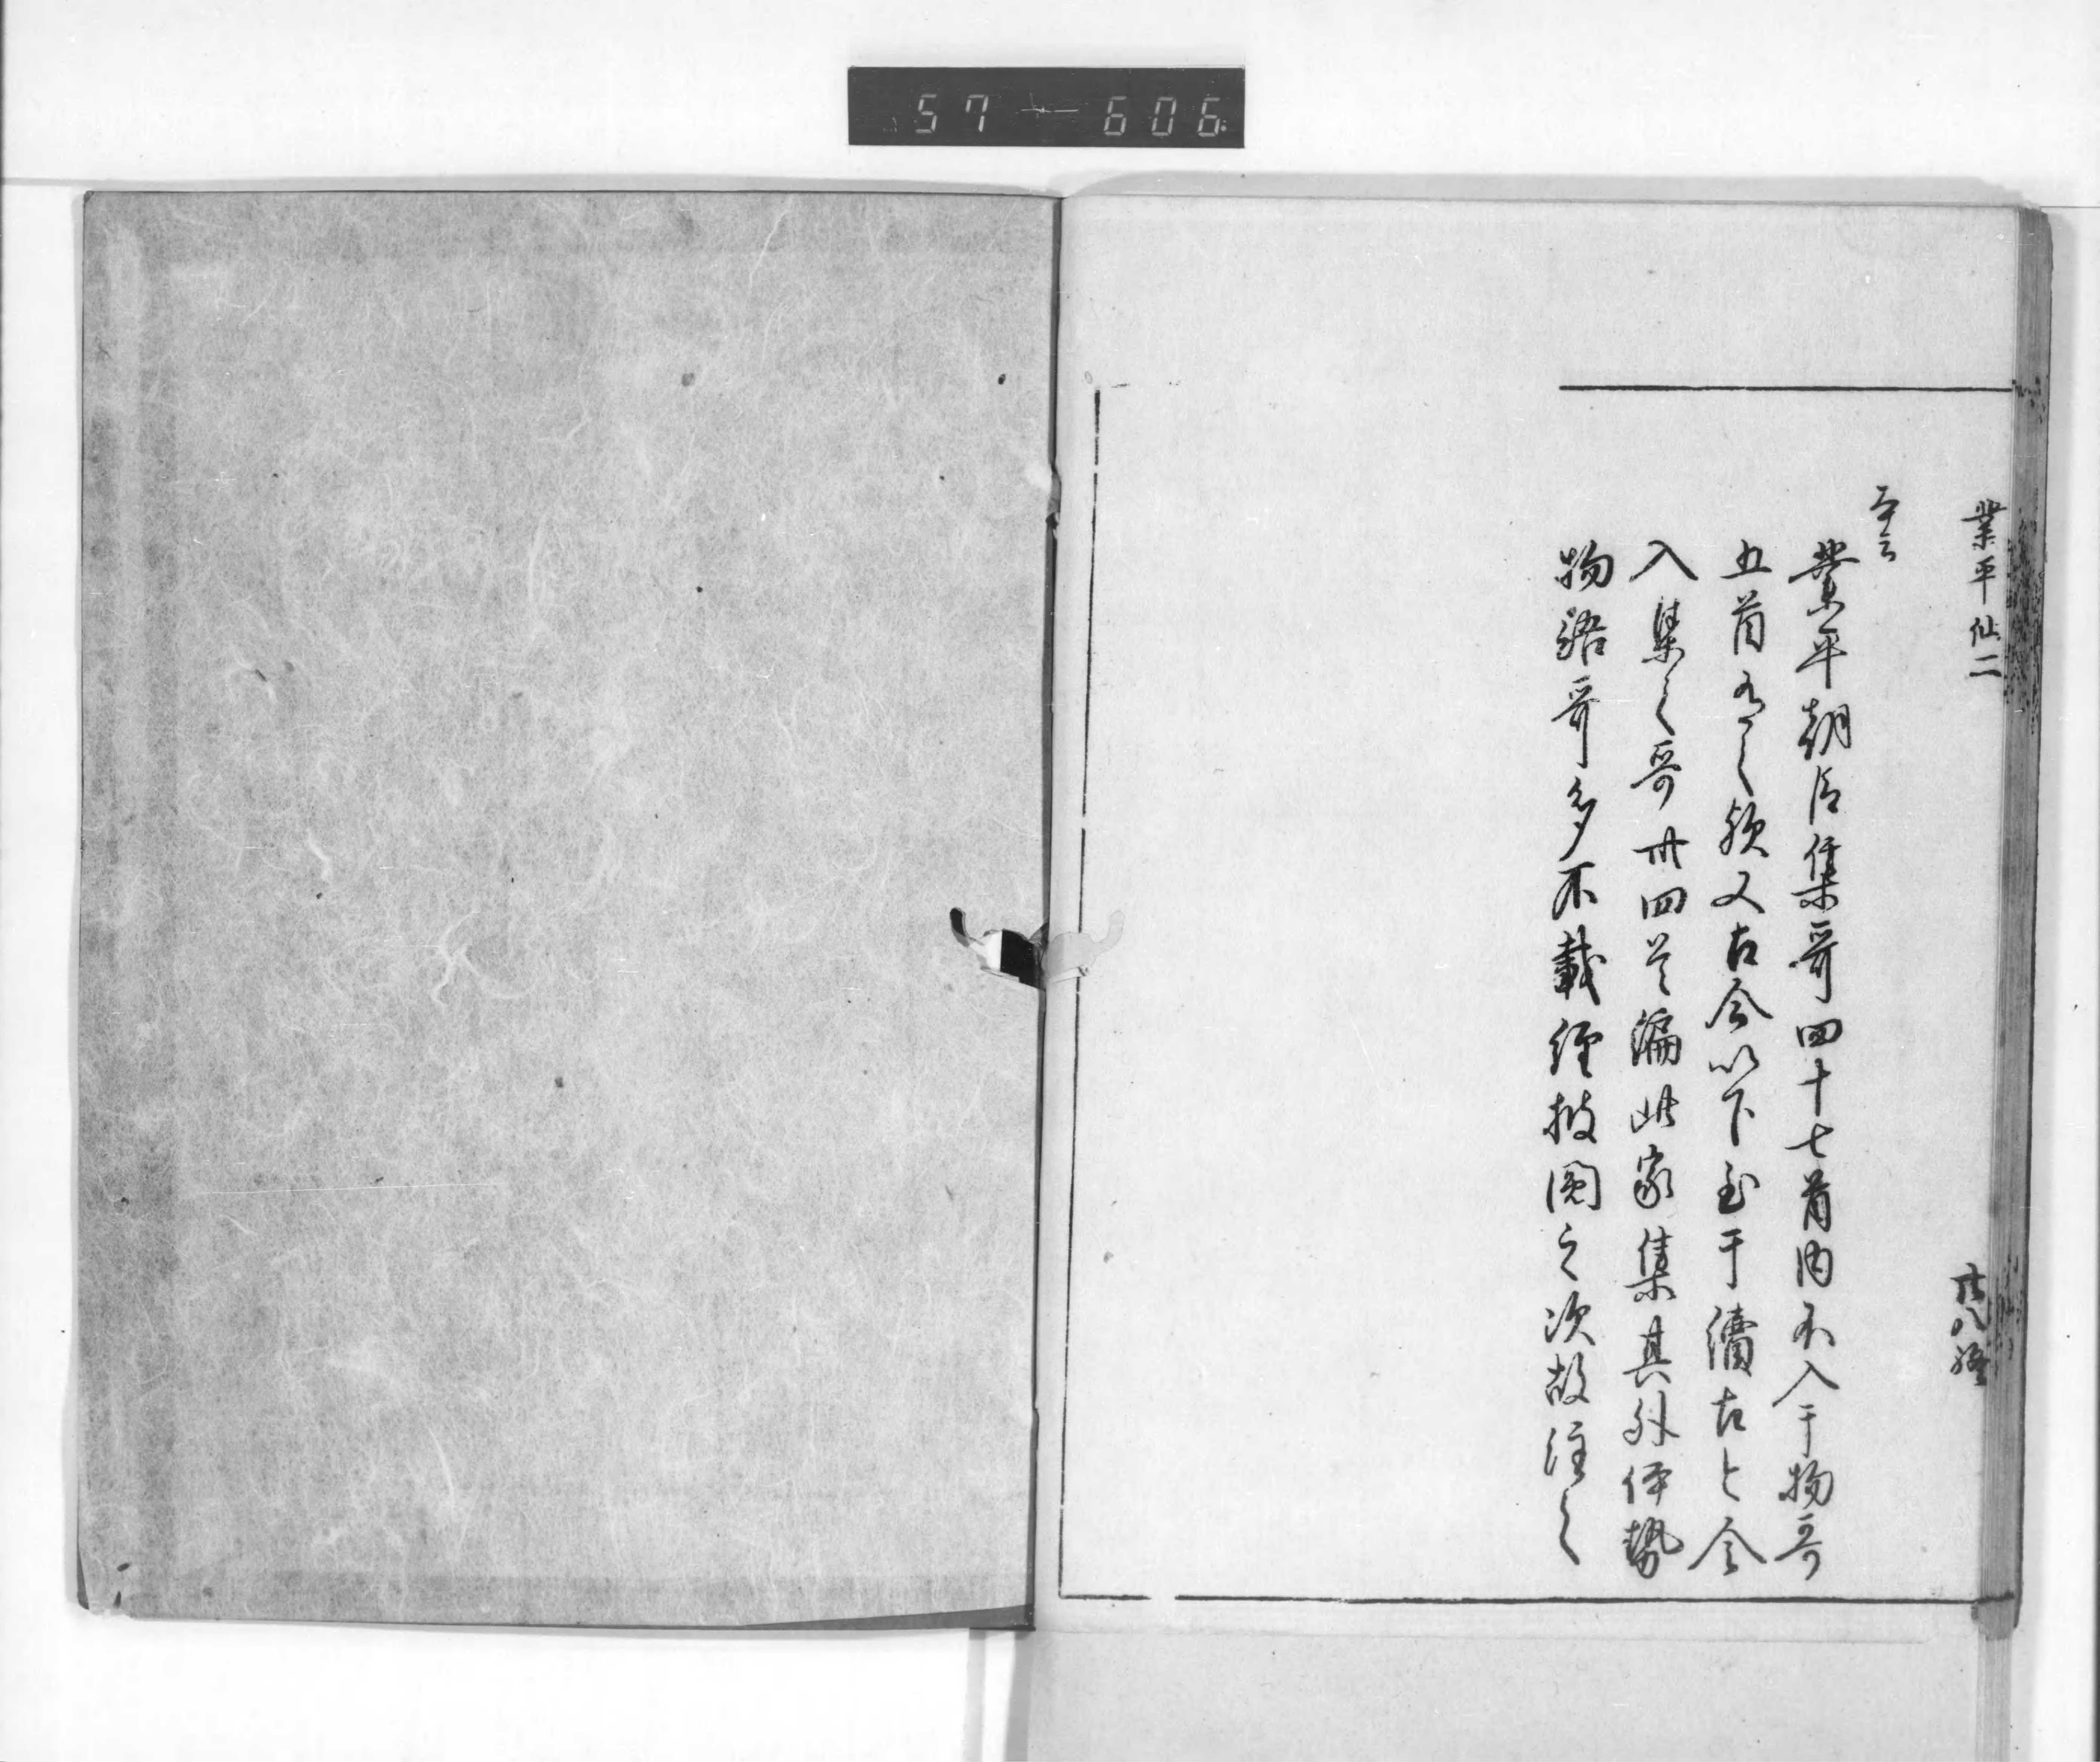 57-606
業平仙二
廿八終
本云
業平朝臣集哥四十七首内不入于物哥
五首有之欤又古今以下至于續古今
入集之哥卅四首漏此家集其外伊勢
物語哥多不載經披閲之次故注之